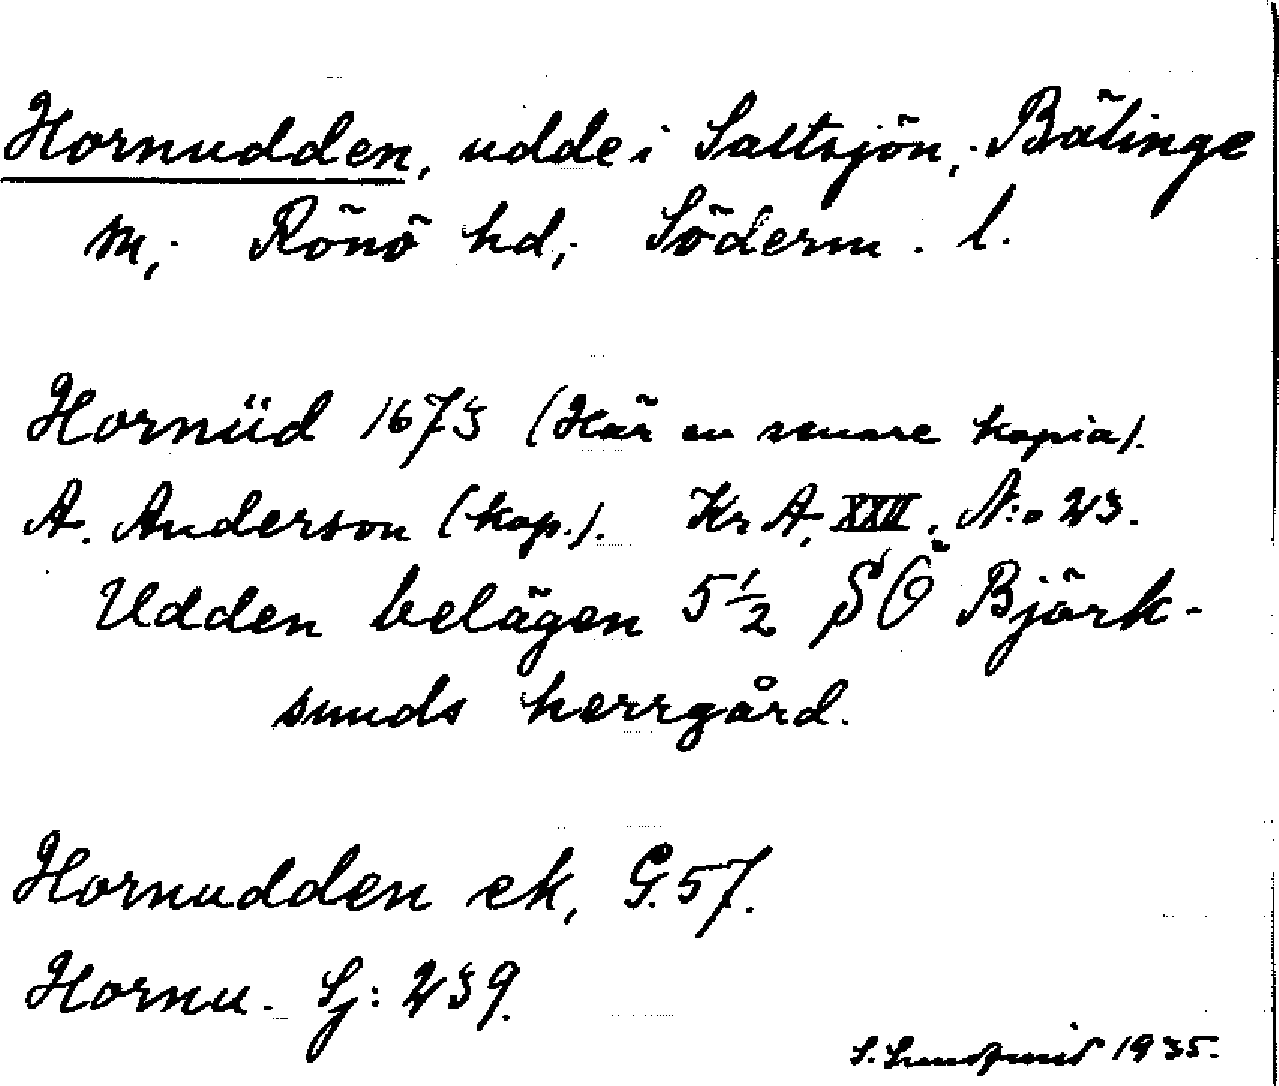 Hornudden, udde i Saltsjön, Bälinge
sn, Rönö hd, Söderm. l.
Hornüd 1673 (Här en senare kopia).
A. Anderson (kop.). Kr A, XXII, N:o 23.
Udden belägen 5 1/2 SÖ Björk-
sunds herrgård.
Hornudden ek, G. 57.
Hornu. Sj: 239.
S. Lundqvist 1935.